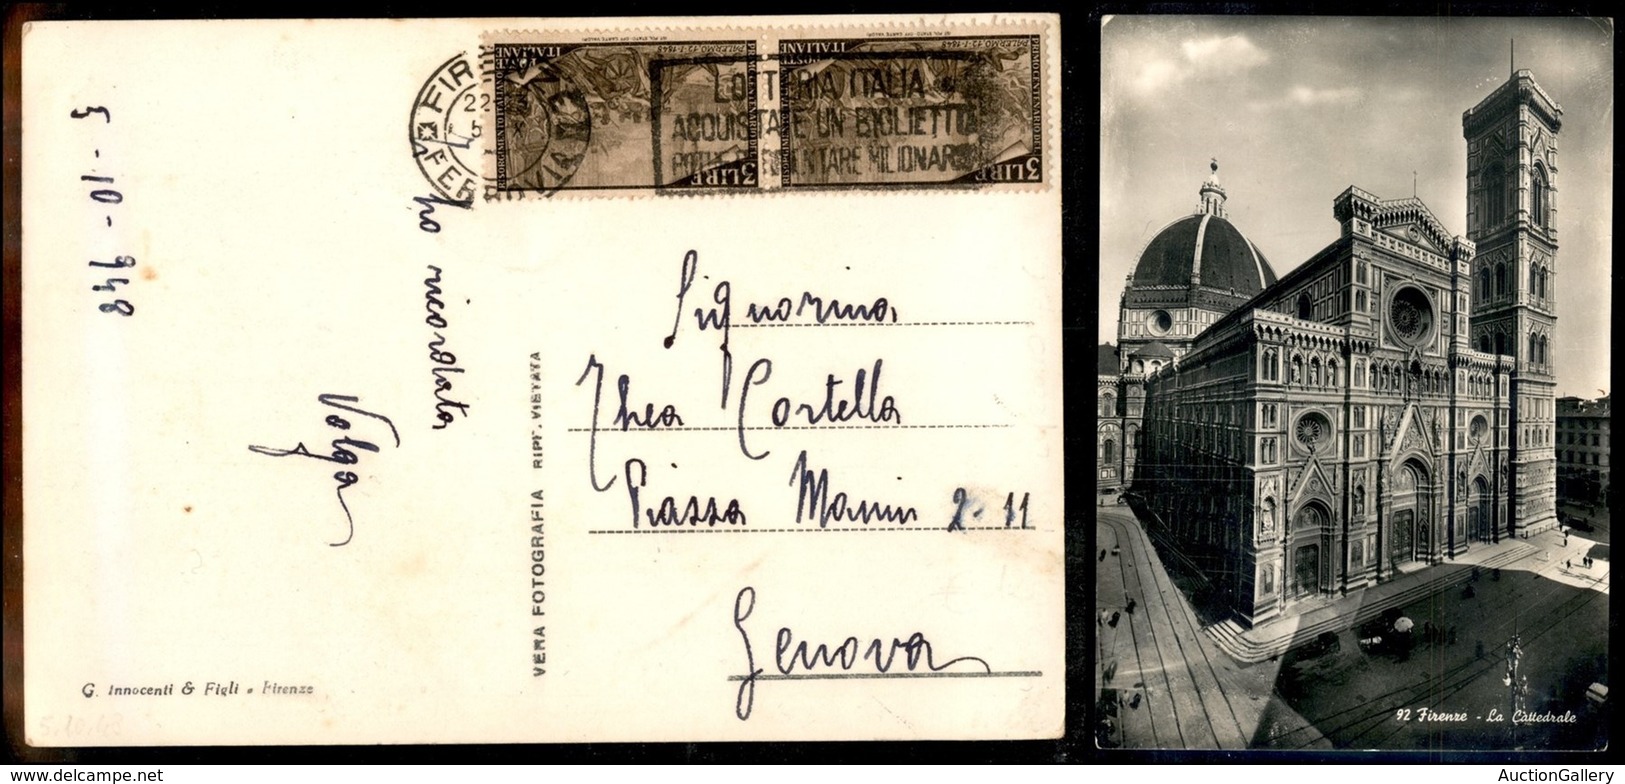 5-10-948
ho ricordata
Volga
G. Innocenti & Figli • Firenze
5.10.48
VERA FOTOGRAFIA RIPR. VIETATA
FERROVIA
22
5 X
LOTTERIA ITALIA
ACQUISTATE UN BIGLIETTO
POTRETE DIVENTARE MILIONARI
PRIMO CENTENARIO DEL RISORGIMENTO ITALIANO
POSTE ITALIANE
PALERMO 12-1-1848
3 LIRE
PRIMO CENTENARIO DEL RISORGIMENTO ITALIANO
POSTE ITALIANE
PALERMO 12-1-1848
3 LIRE
Signorina
Thea Cortella
Piazza Manin 2-11
Genova
92 Firenze - La Cattedrale
AuctionGallery